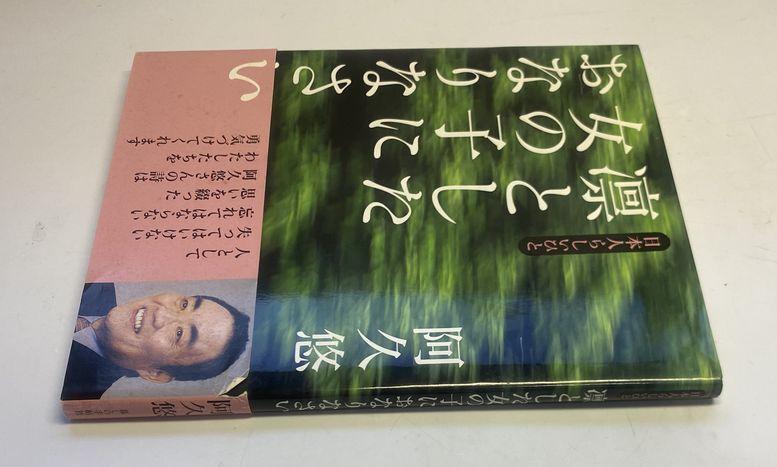 日本人らしいひと
凛とした
女の子に
おなりなさい
阿久悠
人として
失ってはいけない
忘れてはならない
思いを綴った
阿久悠さんの詩は
わたしたちを
勇気づけてくれます
日本人らしいひと 凛とした女の子におなりなさい 阿久悠 暮しの手帖社